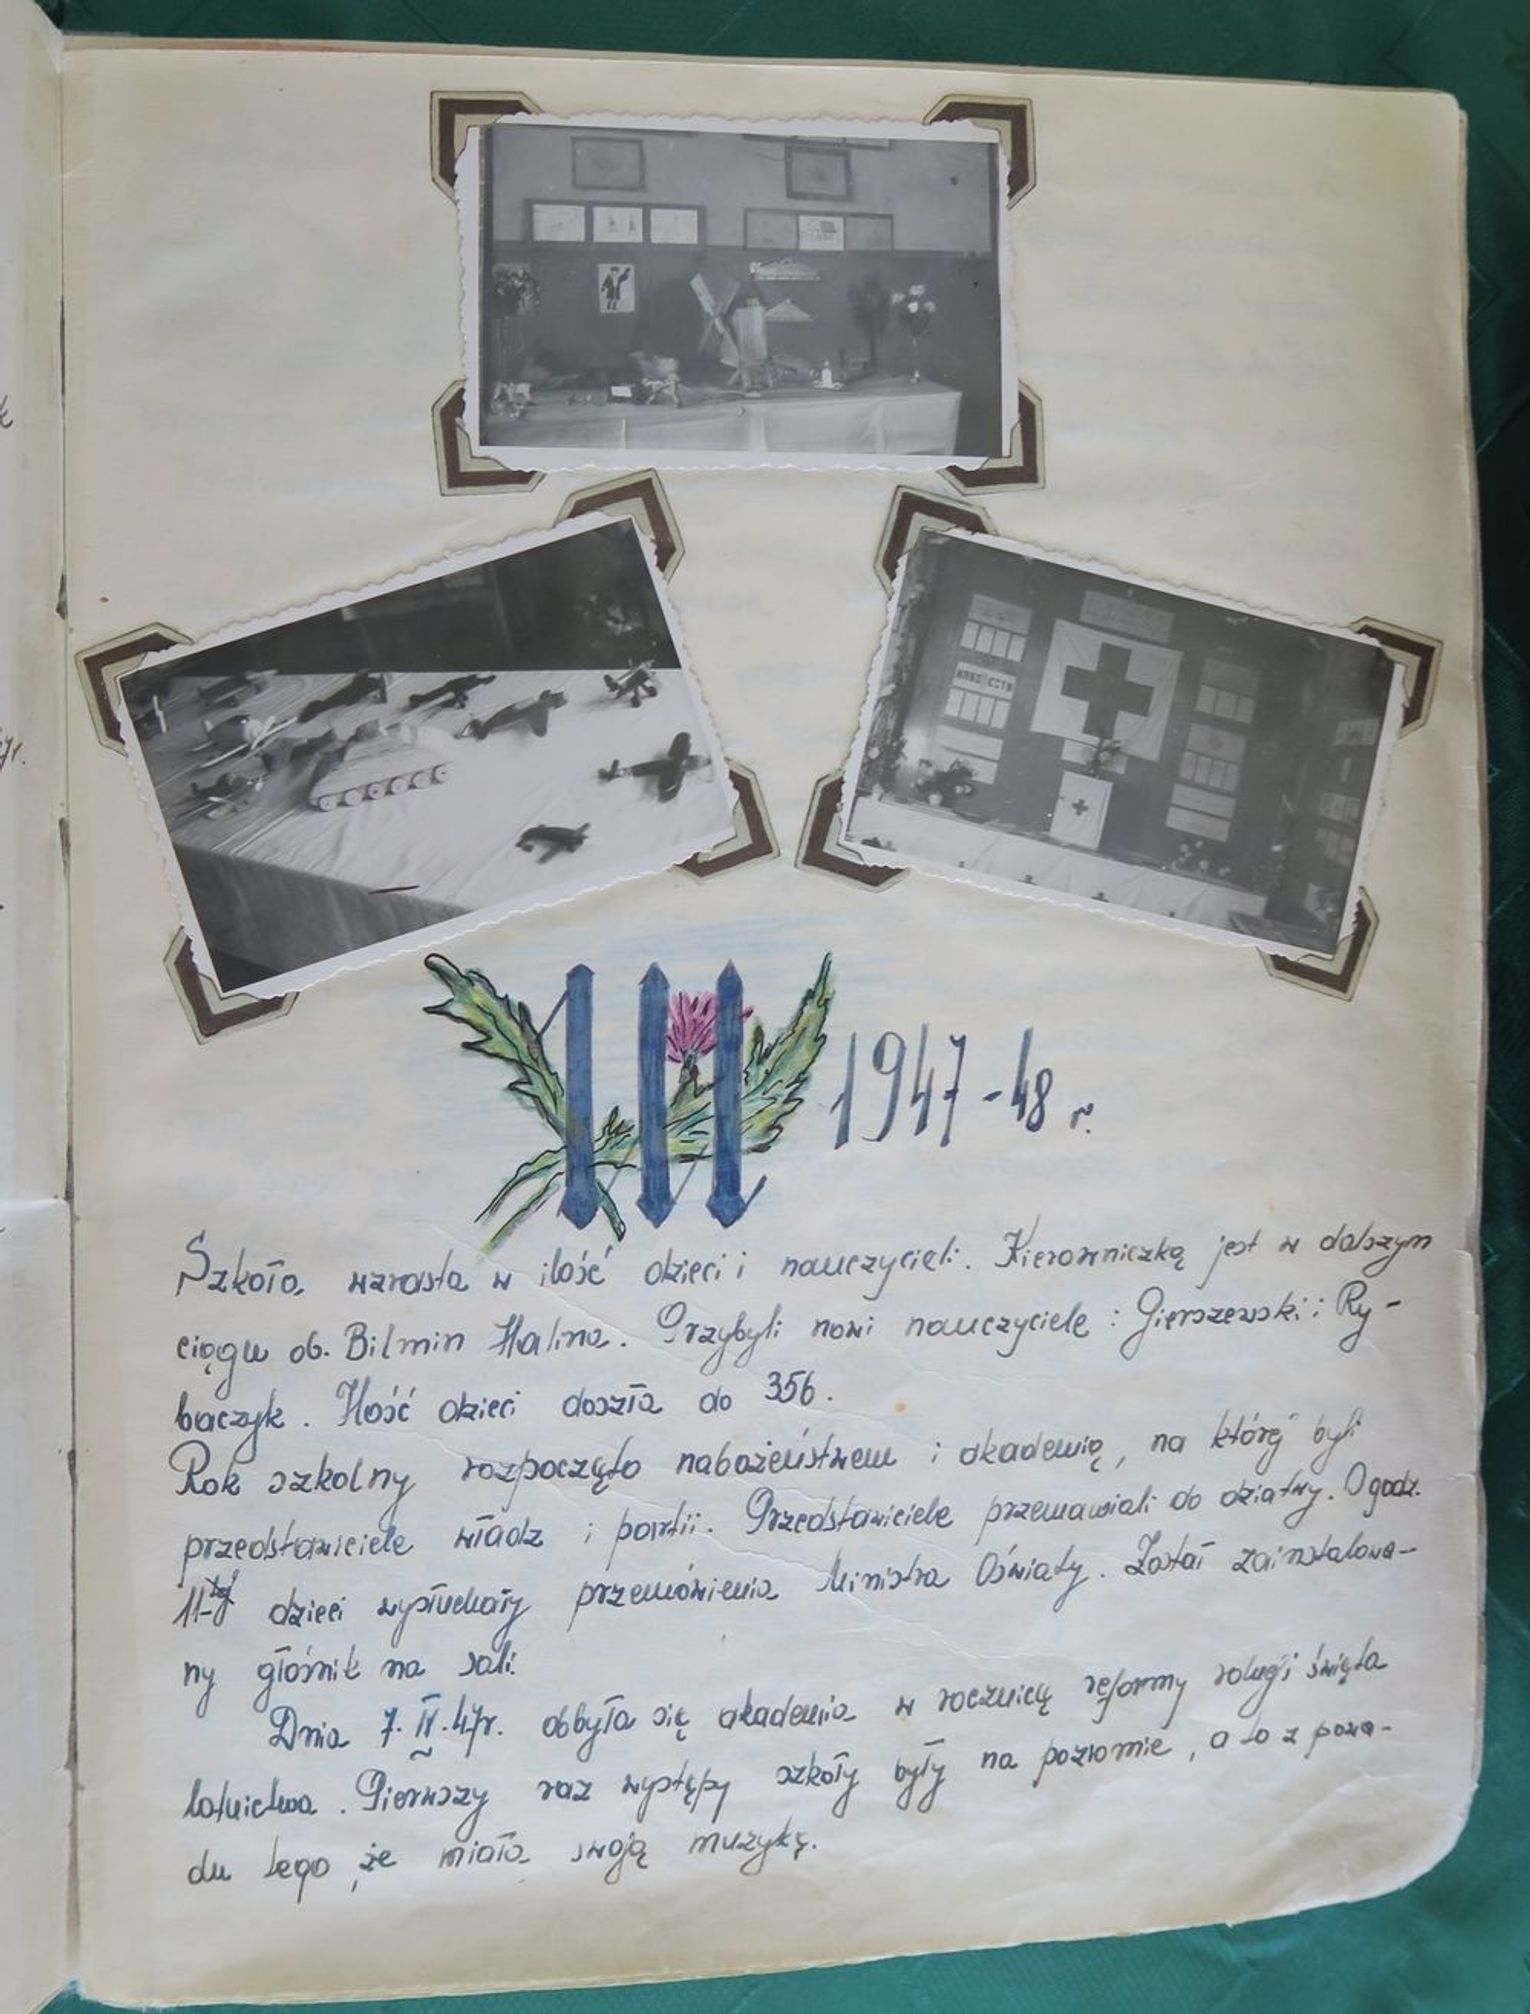 III 1947-48 r.
Szkoła wzrasta w ilość dzieci i nauczycieli. Kierowniczką jest w dalszym
ciągu ob. Bilmin Halina. Przybyli nowi nauczyciele: Gierszewski i Ry-
baczyk. Ilość dzieci doszła do 356.
Rok szkolny rozpoczęto nabożeństwem i akademią, na której byli
przedstawiciele władz i partii. Przedstawiciele przemawiali do dziatwy. O godz.
11-tej dzieci wysłuchały przemówienia Ministra Oświaty. Został zainstalowa-
ny głośnik na sali.
Dnia 7.IX.47r. odbyła się akademia w rocznicę reformy rolnej i święta
lotnictwa. Pierwszy raz występy szkoły były na poziomie, a to z powo-
du tego, że miała swoją muzykę.